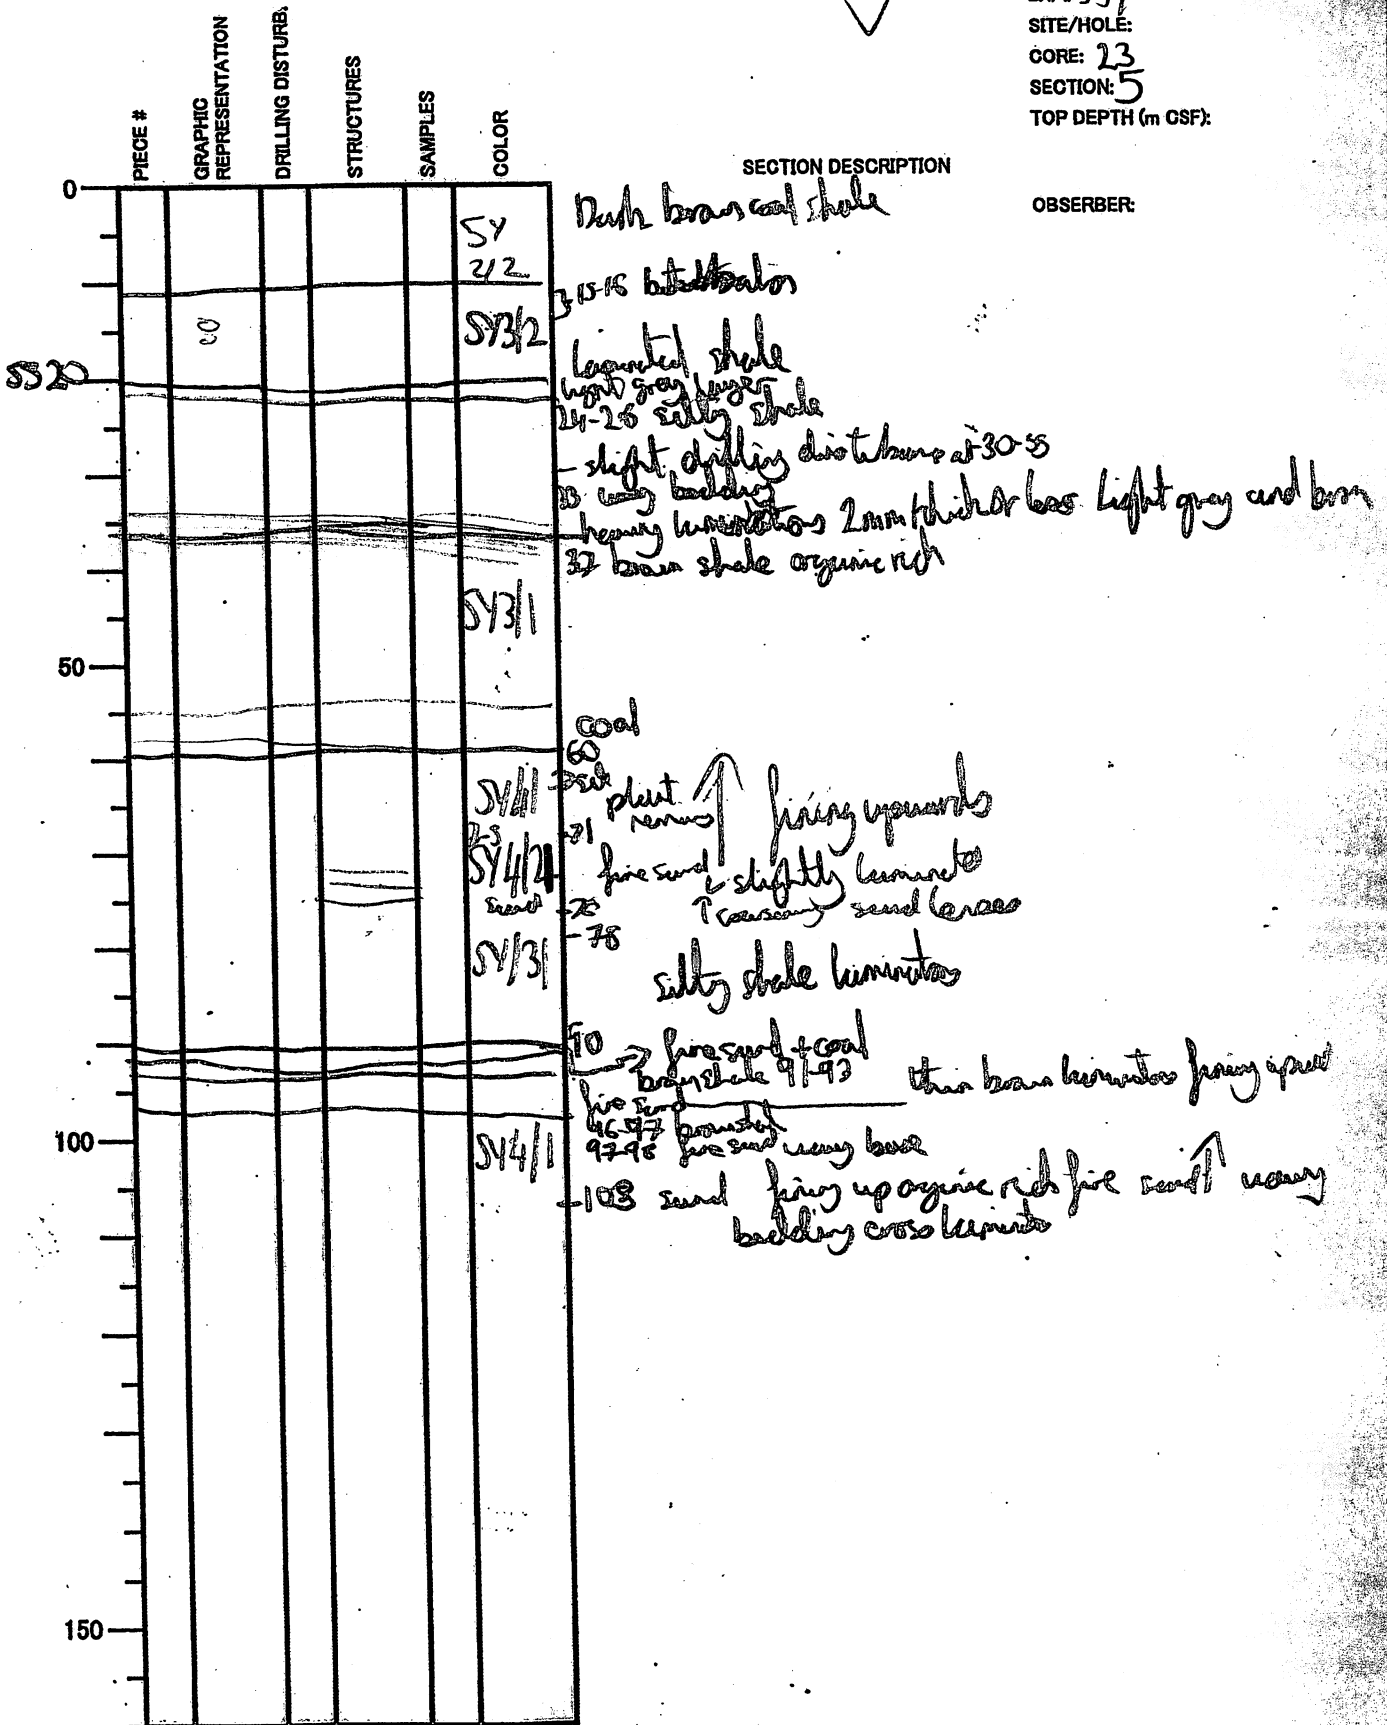 SITE/HOLE:
CORE: 23
SECTION: 5
TOP DEPTH (m CSF):
OBSERBER:
PIECE #
GRAPHIC REPRESENTATION
DRILLING DISTURB.
STRUCTURES
SAMPLES
COLOR
SECTION DESCRIPTION
0
5Y
2/2
Dark brown coal shale
15-16
5Y3/2
laminated shale
SS 20
light grey layer
24-26 silty shale
- slight drilling disturbance at 30-55
33 wavy bedding
heavy laminations 2mm thick or less light grey and brown
37 brown shale organic rich
5Y3/1
50
coal
60
5Y4/1
plant remains
fining upwards
71
5Y4/2
fine sand
slightly laminated
sand
sand lenses
-78
5Y/3/1
silty shale laminations
90
fine sand + coal
brown shale 91-93
thin brown laminations fining upward
fine sand
96-97 brown shale
97-98 fine sand wavy base
100
5Y4/1
-103 sand fining up organic rich fine sand wavy
bedding cross laminated
150